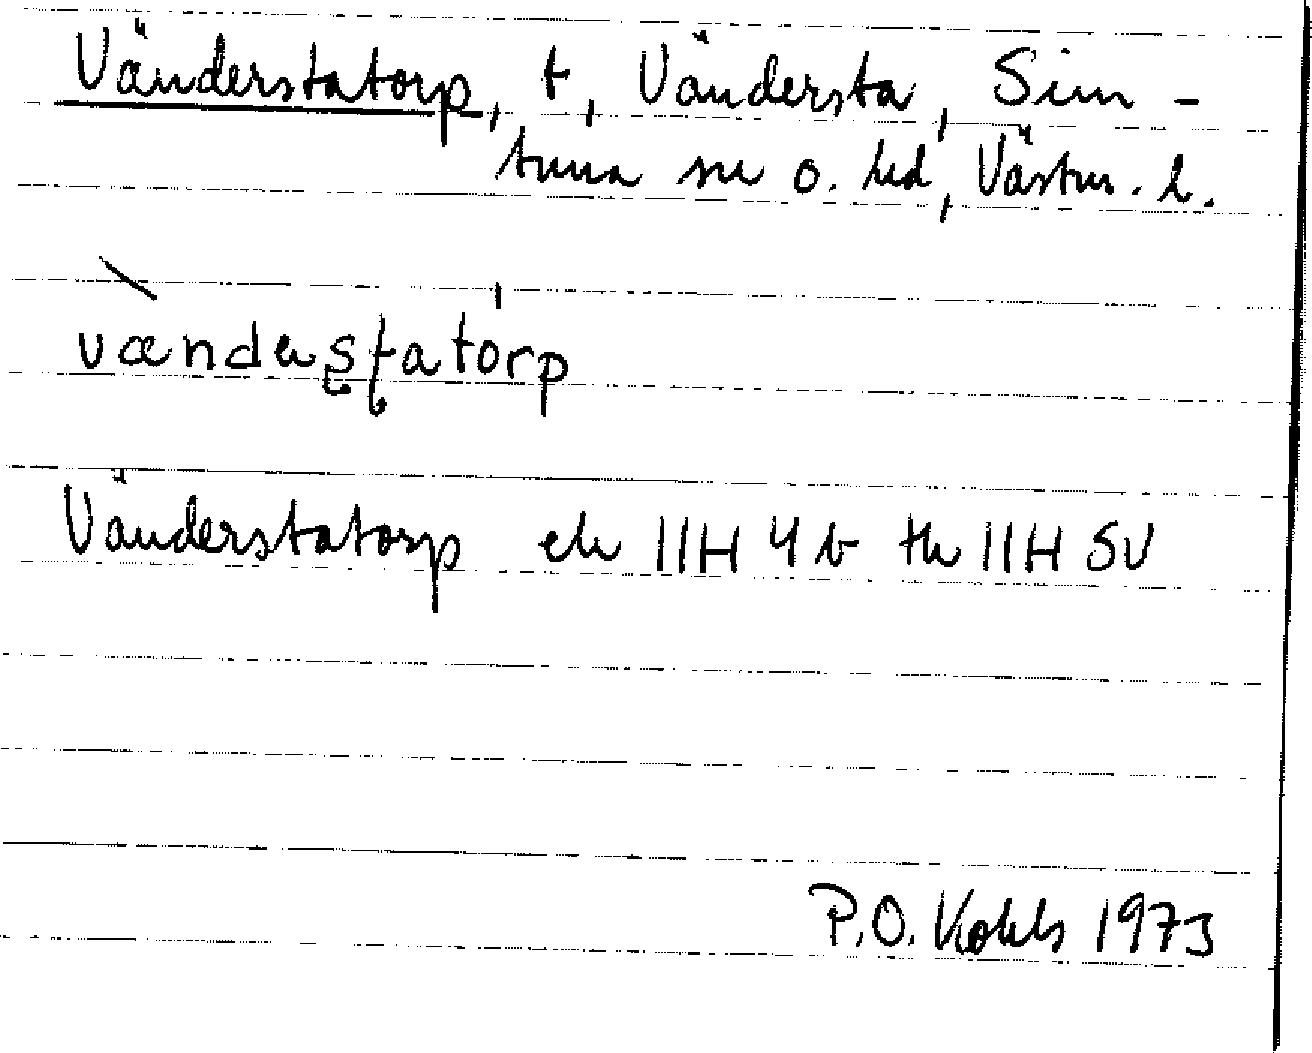 Vänderstatorp, t, Vändersta, Sim-
tuna sn o. hd, Västm. l.
vændeʂʈatórp
Vänderstatorp ek 11H 4b th 11H SV
P.O. Kohls 1973